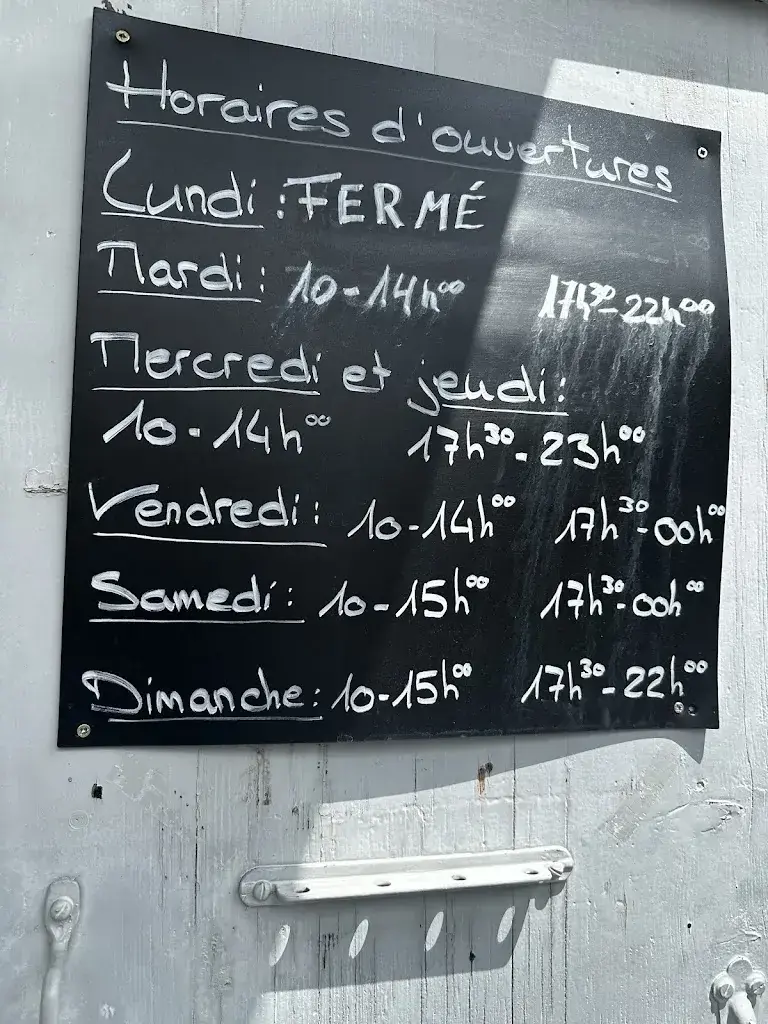 Horaires d'ouvertures
Lundi : FERMÉ
Mardi : 10-14h00 17h30-22h00
Mercredi et jeudi :
10-14h00 17h30-23h00
Vendredi : 10-14h00 17h30-00h00
Samedi : 10-15h00 17h30-00h00
Dimanche : 10-15h00 17h30-22h00